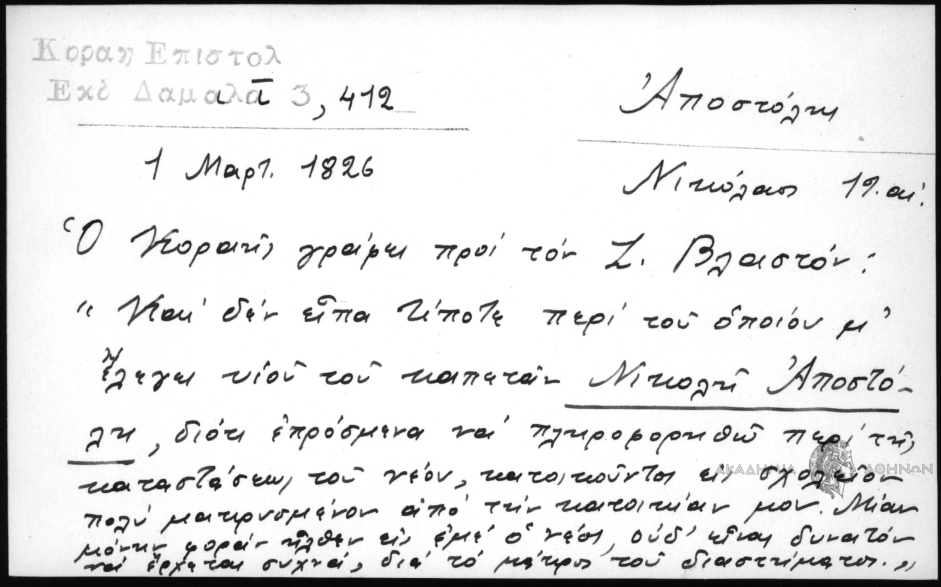 Κοραη Επιστολ
Εκδ Δαμαλᾶ 3, 412
Ἀποστόλη
1 Μαρτ. 1826
Νικόλαος 19. αἰ.
Ὁ Κοραῆς γράφει πρὸς τὸν Σ. Βλαστόν:
"Καὶ δὲν εἶπα τίποτε περὶ τοῦ ὁποίου μ'
ἔλεγες υἱοῦ τοῦ καπετὰν Νικολῆ Ἀποστό-
λη, διότι ἐπρόσμενα νὰ πληροφορηθῶ περὶ τῆς
καταστάσεως τοῦ νέου, κατοικοῦντος εἰς σχολεῖον
πολὺ μακρυσμένον ἀπὸ τὴν κατοικίαν μου. Μίαν
μόνην φορὰν ἦλθεν εἰς ἐμὲ ὁ νέος, οὐδ' εἶναι δυνατὸν
νὰ ἔρχεται συχνά, διὰ τὸ μάκρος τοῦ διαστήματος."
ΑΚΑΔΗΜΙΑ ΑΘΗΝΩΝ